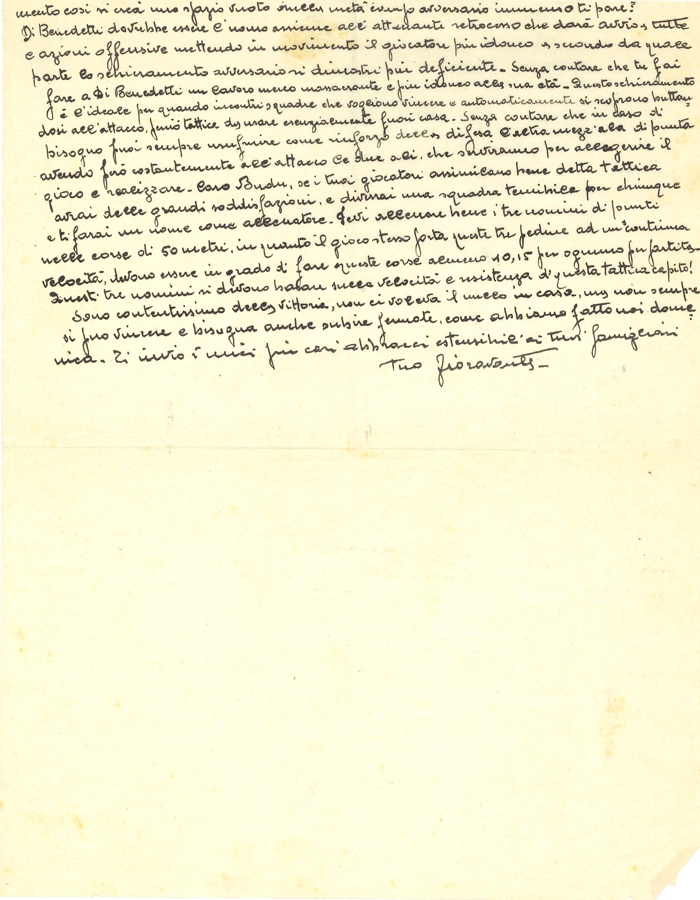 mento cosi si crea uno spazio vuoto nella metà campo avversario immenso ti pare?
Di Benedetti dovrebbe essere l'uomo assieme all'attaccante retrocesso che darà avvio a tutte
le azioni offensive mettendo in movimento il giocatore più idoneo a secondo da quale
parte lo schieramento avversario si dimostri più deficiente - Senza contare che tu fai
fare a Di Benedetti un lavoro meno massacrante e più idoneo alla sua età - Questo schieramento
è l'ideale per quando incontri squadre che vogliono vincere e automaticamente si scoprono buttan
dosi all'attacco, però tattica da usare essenzialmente fuori casa. Senza contare che in caso di
bisogno puoi sempre usufruire come rinforzo della difesa l'altra mezz'ala di punta
avendo però costantemente all'attacco le due ali, che serviranno per alleggerire il
gioco e realizzare - Caro Budu, se i tuoi giocatori assimilano bene detta tattica
avrai delle grandi soddisfazioni, e diverrai una squadra temibile per chiunque
e ti farai un nome come allenatore - Devi allenare bene i tre uomini di punta
nelle corse di 50 metri, in quanto il gioco stesso porta queste tre pedine ad un continua
velocità, devono essere in grado di fare queste corse almeno 10,15 per ognuno per partita
Questi tre uomini si devono basare sulla velocità e resistenza d'questa tattica capito!
Sono contentissimo della vittoria, non ci voleva il nullo in casa, ma non sempre
si può vincere e bisogna anche subire fermate, come abbiamo fatto noi dome
nica. Ti invio i miei più cari abbracci estensibile ai tuoi famigliari
tuo Fioravante -